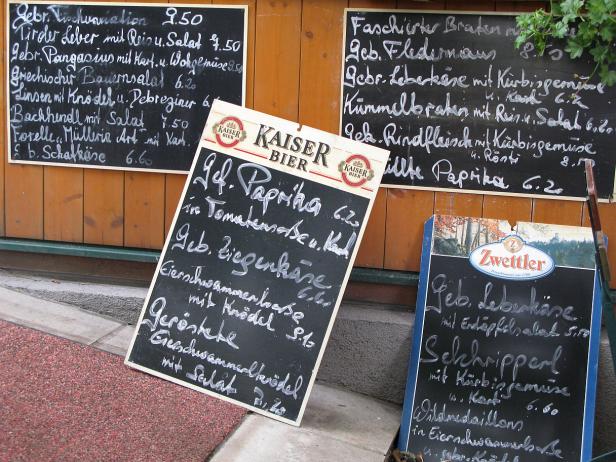 Gebr. Fischvariation 9.50
Tiroler Leber mit Reis u. Salat 7.50
Gebr. Pangasius mit Kart. u. Wokgemüse 8.50
Griechischer Bauernsalat 6.20
Linsen mit Knödel u. Debreziner 6.
Backhendl mit Salat 7.50
Forelle n. Müllerin Art mit Kart
Geb. Schafkäse 6.60
Faschierter Braten mit
Geb. Fledermaus 8.10
Gebr. Leberkäse mit Kürbisgemüse
u. Kart 6.20
Kümmelbraten mit Reis u. Salat 6.60
Gek. Rindfleisch mit Kürbisgemüse
u. Rösti 8.
üllte Paprika 6.20
KAISER
KAISER
BIER
KAISER
BIER
Gef. Paprika 6.20
in Tomatensoße u. Kart
Geb. Ziegenkäse 6.60
Eierschwammerlsoße
mit Knödel 8.10
Geröstete
Eierschwammerlknödel
mit Salat 7.20
Zwettler
Geb. Leberkäse
mit Erdäpfelsalat 5.80
Selchripperl
mit Kürbisgemüse
u. Kart 6.60
Wildmedaillons
in Eierschwammerlsoße